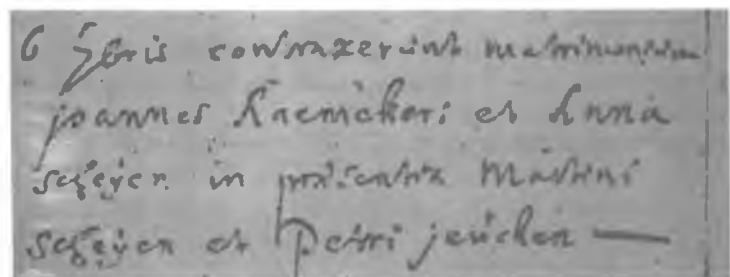 6 7bris contraxerunt matrimonium
joannes Kaemekers et Anna
segeijen in præsentia Martini
segeijen et Petri jeucken —